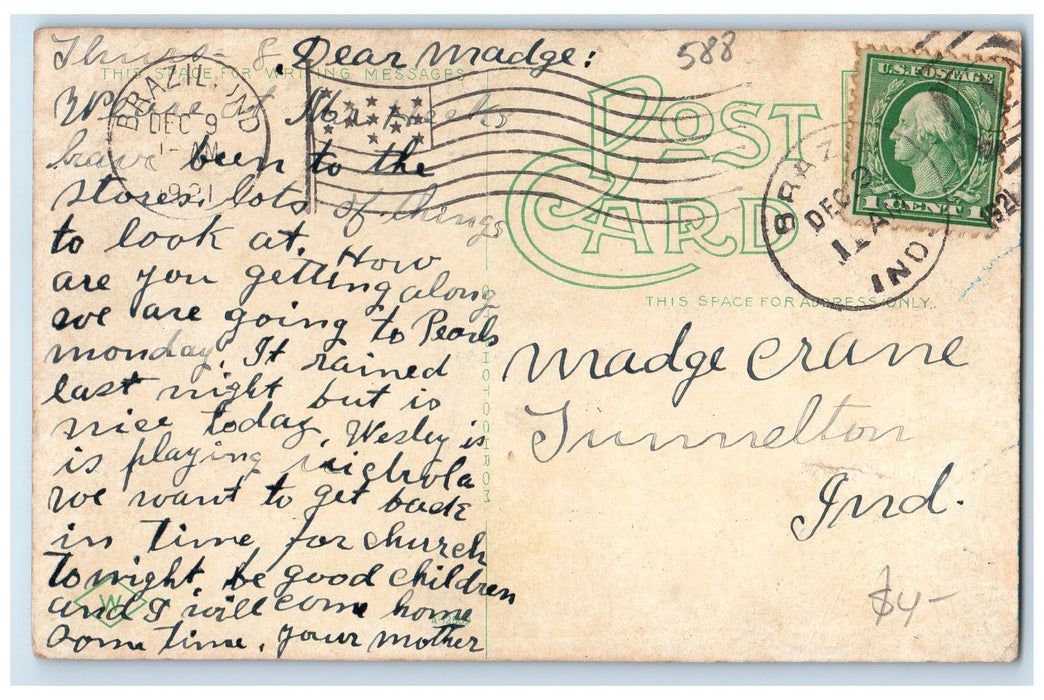 Thurs 8. Dear Madge:
588
THIS SPACE FOR WRITING MESSAGES
We are at
have been to the
stores, lots of things
to look at. How
are you getting along
we are going to Pearls
monday. It rained
last night but is
nice today. Wesley is
is playing
we want to get back
in time for church
to night be good children
and I will come home
some time. your mother
BRAZIL, IND
DEC 9
1 - AM
1921
POST
CARD
U.S. POSTAGE
1 CENT 1
BRAZ
DEC
1 A
1921
IND
THIS SPACE FOR ADDRESS ONLY.
Madge Crane
Tunnelton
Ind.
$4-
W